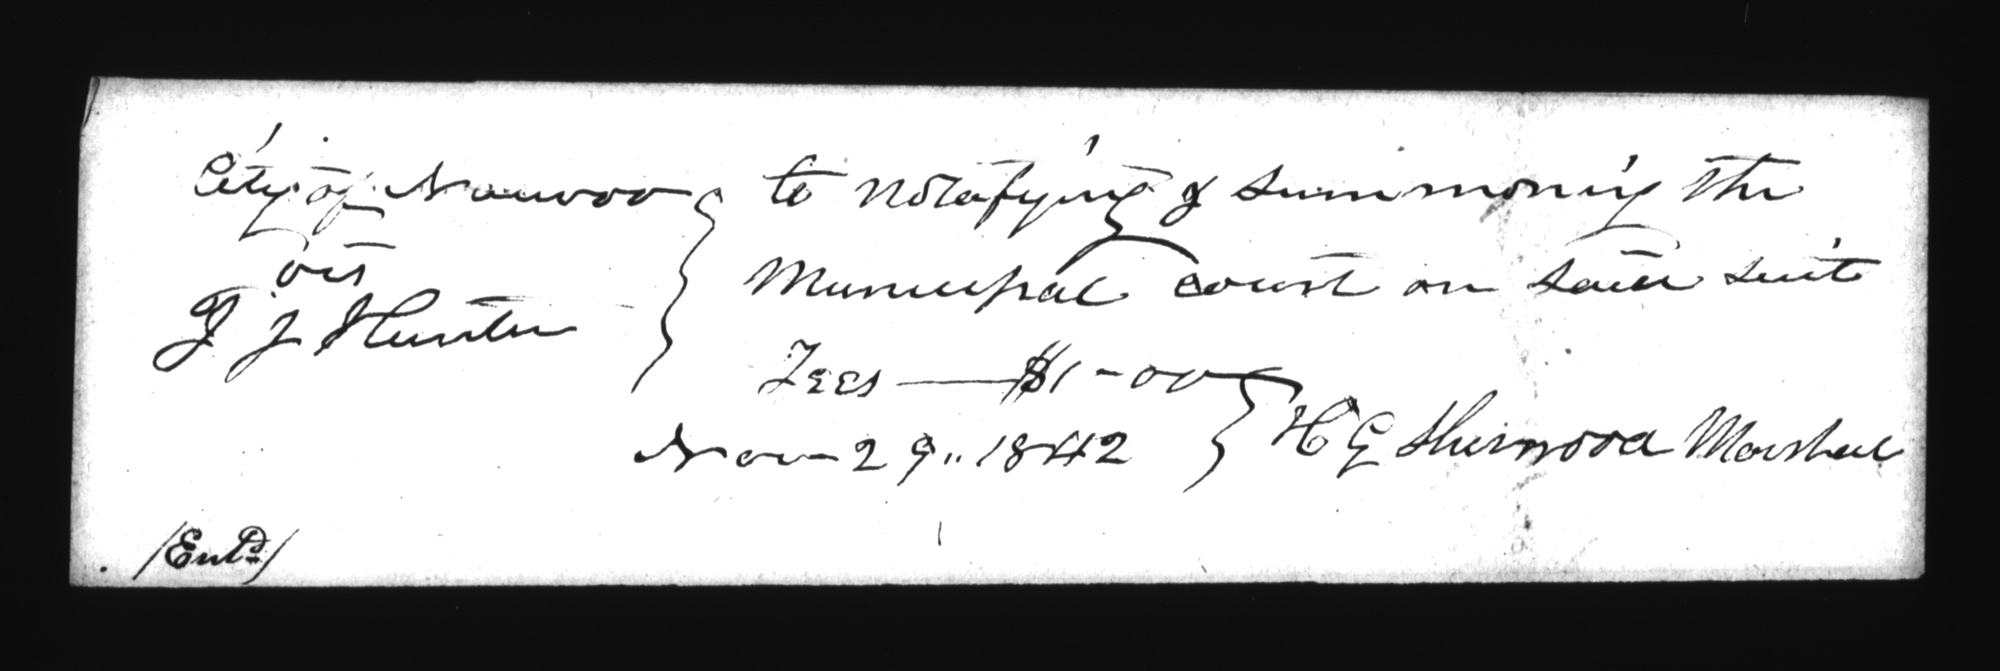 City of Nauvoo } to notafying & summoning the
vs
Municipal court on said suit
J J Hunter
Fees — $1-00
Nov 29,, 1842 } H G Sherwood Marshal
/Entd/